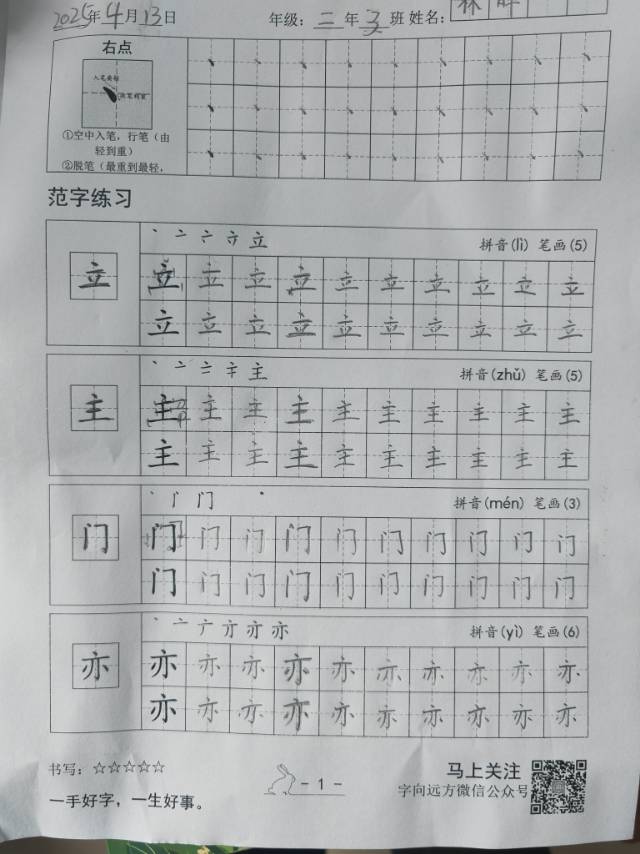 2025年4月13日 年级：三年3班 姓名：林
右点
①空中入笔，行笔（由
轻到重）
②脱笔（最重到最轻，
范字练习
立 拼音(lì) 笔画(5)
立 立 立 立 立 立 立 立 立 立 立
立 立 立 立 立 立 立 立 立 立
主 拼音(zhǔ) 笔画(5)
主 主 主 主 主 主 主 主 主 主 主
主 主 主 主 主 主 主 主 主 主
门 拼音(mén) 笔画(3)
门 门 门 门 门 门 门 门 门 门 门
门 门 门 门 门 门 门 门 门 门
亦 拼音(yì) 笔画(6)
亦 亦 亦 亦 亦 亦 亦 亦 亦 亦 亦
亦 亦 亦 亦 亦 亦 亦 亦 亦 亦
书写：☆☆☆☆☆
一手好字，一生好事。
- 1 -
马上关注
字向远方微信公众号